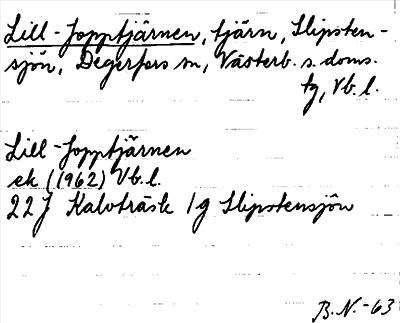 Lill-Jopptjärnen, tjärn, Slipsten-
sjön, Degerfors sn, Västerb. s. doms.
tg, Vb. l.
Lill-Jopptjärnen
ek (1962) Vb. l.
22J Kalvträsk 1g Slipstensjön
B.N.-63